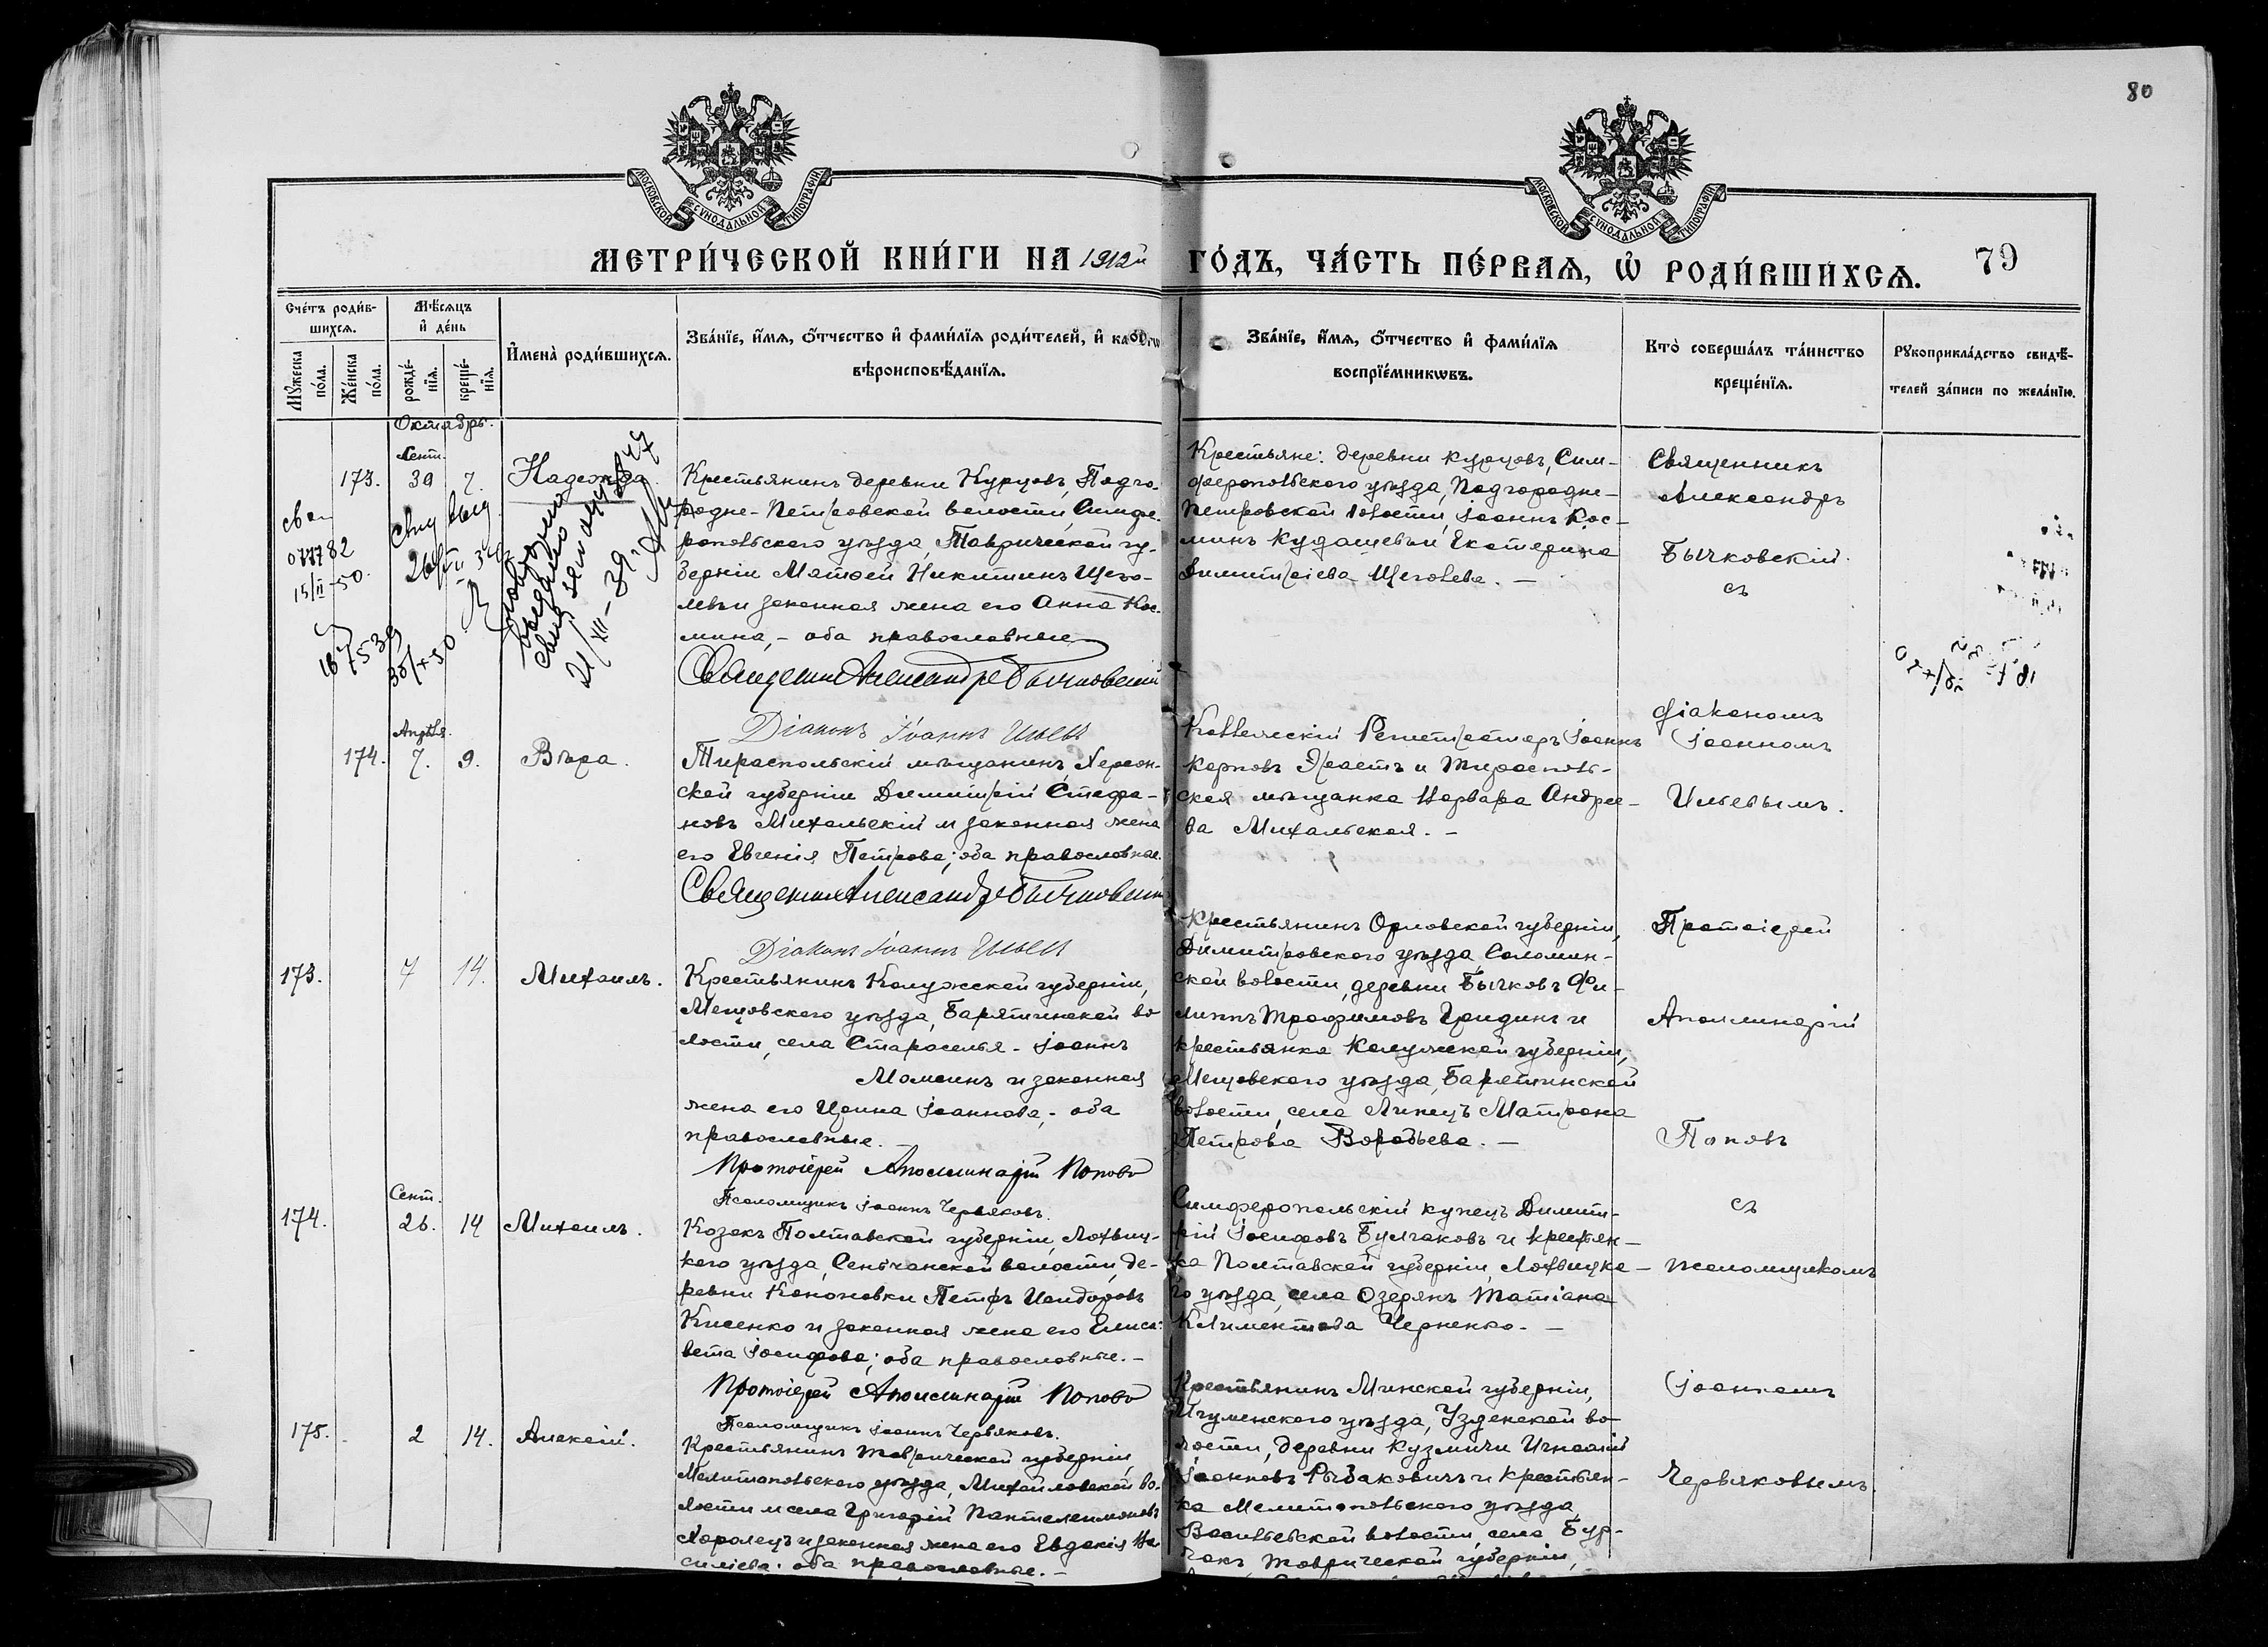 80
МОСКОВСКОЙ СУНОДАЛЬНОЙ ТИПОГРАФІИ
МОСКОВСКОЙ СУНОДАЛЬНОЙ ТИПОГРАФІИ
МЕТРИ́ЧЕСКОЙ КНИ́ГИ НА 1912й ГО́ДЪ, ЧА́СТЬ ПЕ́РВАѦ, Ѡ҆ РОДИ́ВШИХСѦ. 79
Счéтъ роди́в-
шихсѧ.
Мꙋ́жеска пóла.
Жéнска пóла.
Мѣ́сѧцъ
и҆ дéнь
рождé-
нїѧ.
крещé-
нїѧ.
И҆менà роди́вшихсѧ.
Звáнїе, и҆́мѧ, ѻ҆́тчество и҆ фами́лїѧ роди́телей, и҆
вѣроисповѣ́данїѧ.
Звáнїе, и҆́мѧ, ѻ҆́тчество и҆ фами́лїѧ
воспрїéмникѡвъ.
Ктò совершáлъ тáинство
крещéнїѧ.
Рꙋкоприклáдство свидѣ́-
телей зáписи по желáнїю.
Октябрь.
Сент.
173. 30 7. Надежда
Крестьянинъ деревни Курцовъ, Подго-
родне-Петровской волости, Симфе-
ропольскаго уѣзда, Таврической гу-
берніи Матѳей Никитинъ Щего-
левъ и законная жена его Анна Кос-
мина, - оба православные
Священникъ Александръ Бычковскій
Діаконъ Іоаннъ Ильевъ
Крестьяне: деревни Курцовъ, Сим-
феропольскаго уѣзда, Подгородне-
Петровской волости, Іоаннъ Кос-
минъ Кудащевъ и Екатерина
Димитріева Щеголева. -
Священникъ
Александръ
Бычковскій
съ
діакономъ
Іоанномъ
Ильевымъ.
15/II-50.
21/XII-39
Апрѣля.
174. 7. 9. Вѣра.
Тираспольскій мѣщанинъ, Херсон-
ской губерніи Димитрій Стефа-
новъ Михальскій и законная жена
его Евгенія Петрова; оба православные.
Священникъ Александръ Бычковскій
Діаконъ Іоаннъ Ильевъ
Коллежскій Регистраторъ Іоаннъ
Карповъ и Тирасполь-
ская мѣщанка Варвара Андрее-
ва Михальская. -
173. 7 14. Михаилъ.
Крестьянинъ Калужской губерніи,
Мещовскаго уѣзда, Барятинской во-
лости, села Староселья - Іоаннъ
Момсинъ и законная
жена его Ирина Іоаннова, - оба
православные. -
Протоіерей Аполлинарій Поповъ
Псаломщикъ Іоаннъ Червяковъ.
Крестьянинъ Орловской губерніи,
Димитровскаго уѣзда, Соломин-
ской волости, деревни Бычковъ Фи-
липпъ Трофимовъ Гридинъ и
крестьянка Калужской губерніи,
Мещовскаго уѣзда, Барятинской
волости, села Липицъ Матрона
Петрова Воробьева. -
Протоіерей
Аполлинарій
Поповъ
съ
псаломщикомъ
Іоанномъ
Червяковымъ.
Сент.
174. 26. 14 Михаилъ.
Козакъ Полтавской губерніи, Лохвиц-
каго уѣзда, Сенчанской волости, де-
ревни Кононовки Петръ Исидоровъ
Кисенко и законная жена его Елиса-
вета Іосифова; оба православные. -
Протоіерей Аполлинарій Поповъ
Псаломщикъ Іоаннъ Червяковъ.
Симферопольскій купецъ Димит-
рій Іосифовъ Булгаковъ и крестьян-
ка Полтавской губерніи, Лохвицка-
го уѣзда, села Озерянъ Татіана
Климентова Черненко. -
175. 2 14. Алексій.
Крестьянинъ Таврической губерніи,
Мелитопольскаго уѣзда, Михайловской во-
лости и села Григорій Пантелеимоновъ
Харолецъ и законная жена его Евдокія Ва-
силіева; оба православные. -
Крестьянинъ Минской губерніи,
Игуменскаго уѣзда, Узденской во-
лости, деревни Кузмичи Игнатій
Іоанновъ Рыбаковичъ и крестьян-
ка Мелитопольскаго уѣзда,
Васильевской волости, села Бур-
чакъ, Таврической губерніи,